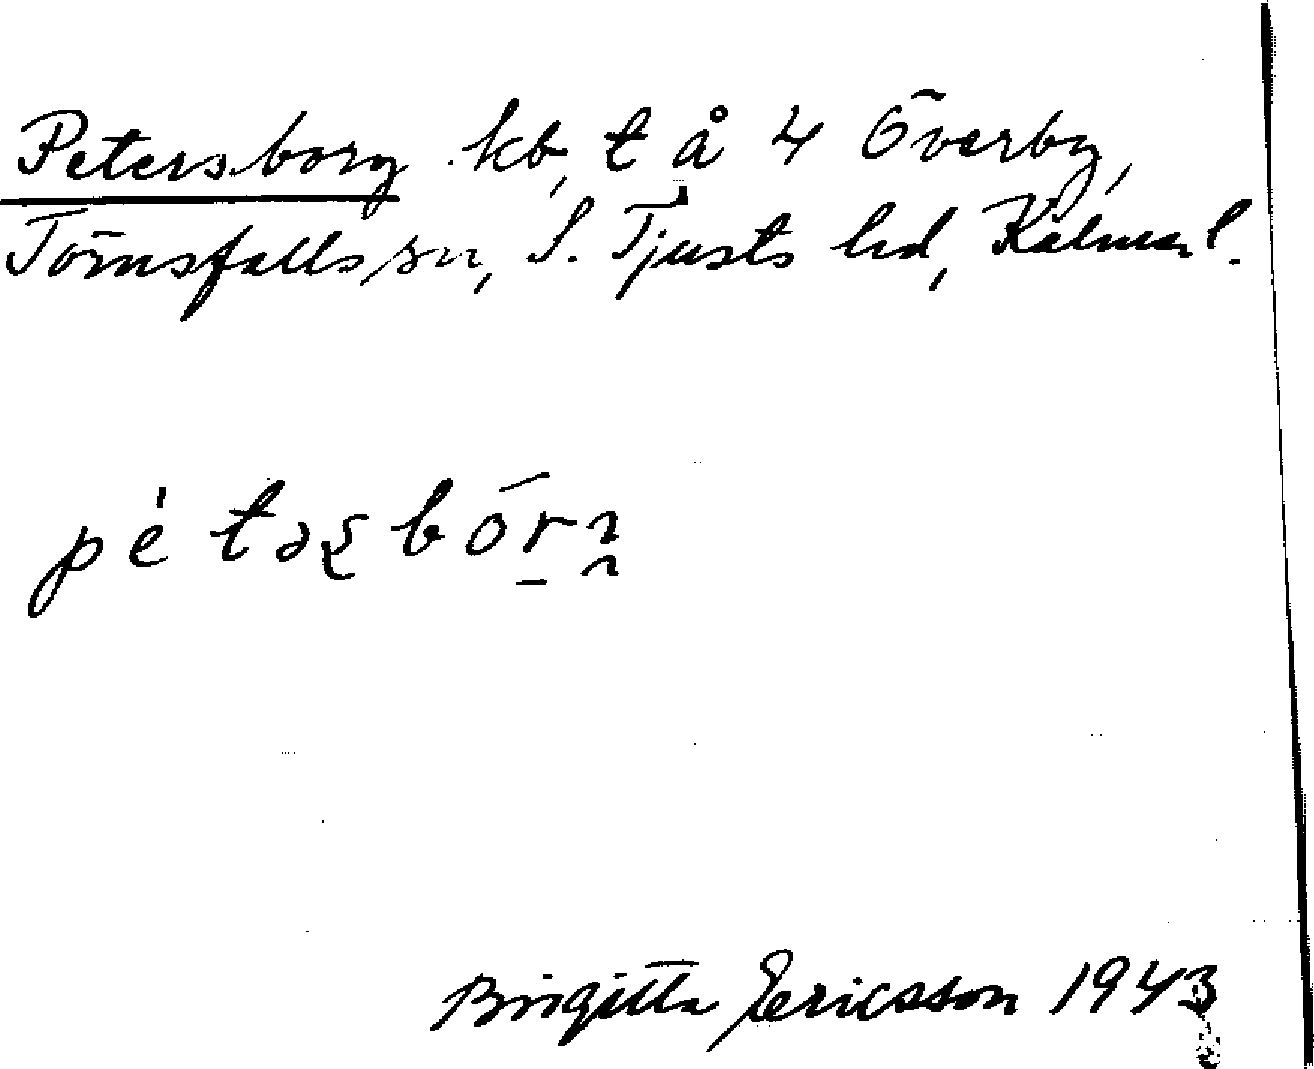 Petersborg kb, t å 4 Överby,
Törnsfalls sn, S. Tjusts hd, Kalmar l.
pétəʂbórꞡ
Birgitta Ericsson 1943